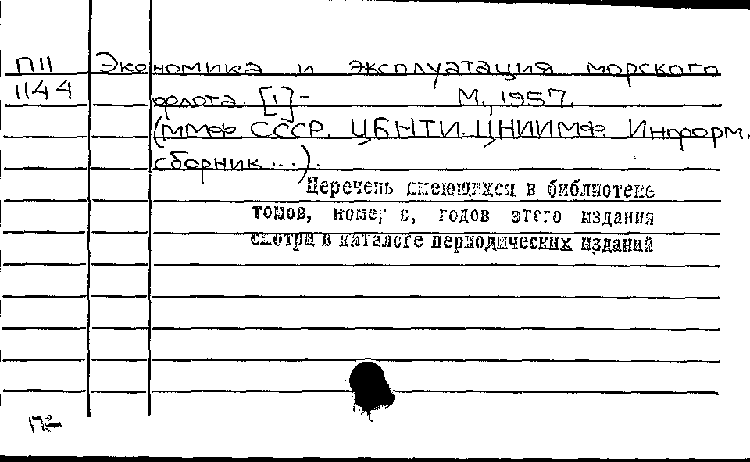 П11 Экономика и эксплуатация морского
1144 флота. [1]- М., 1957.
(ММФ СССР. ЦБНТИ. ЦНИИМФ. Информ.
сборник...).
Перечень имеющихся в библиотеке
томов, номеров, годов этого издания
смотри в каталоге периодических изданий